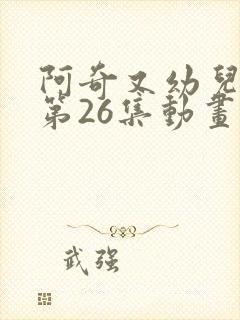 阿奇又幼兒
第26集動畫
武强